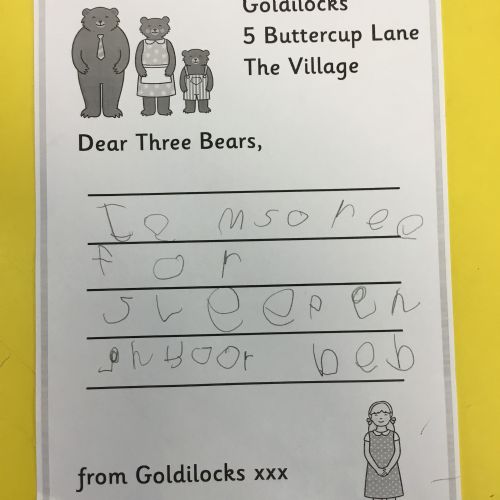 Goldilocks
5 Buttercup Lane
The Village
Dear Three Bears,
Ie msoree
for
sleepen
in yoor beb
from Goldilocks xxx